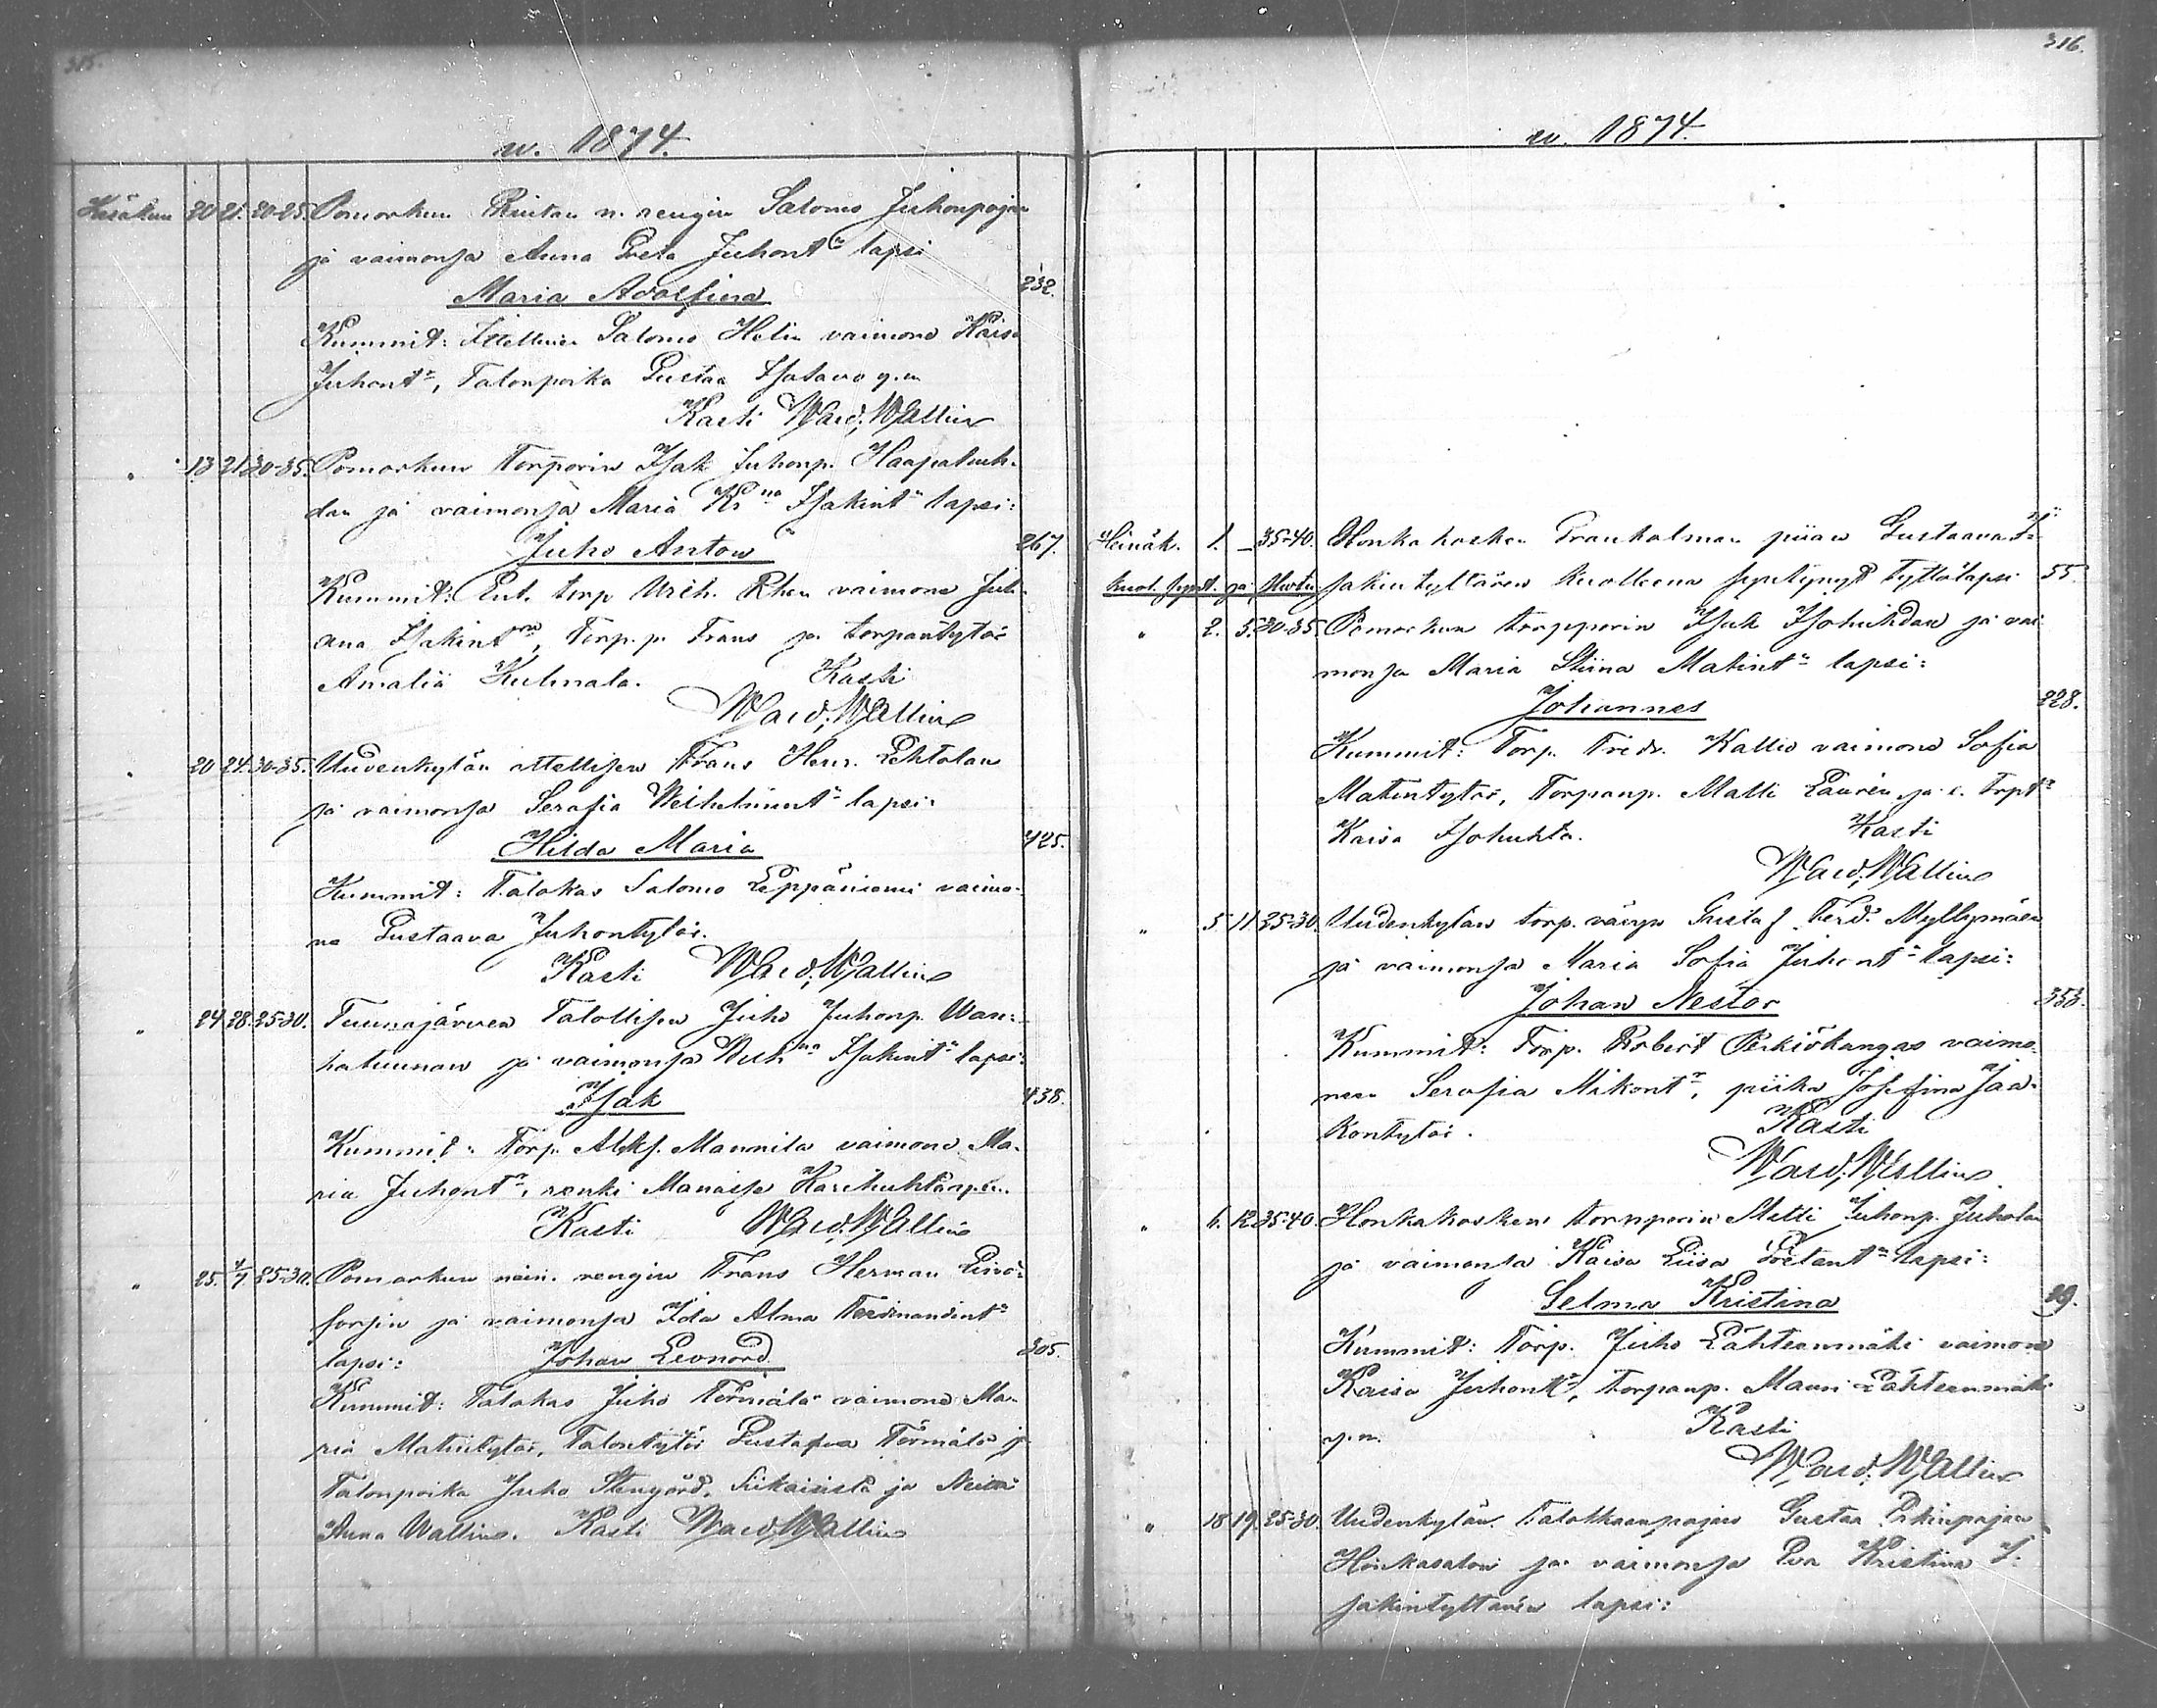 315.
w. 1874.
Kesäkuu 20 21. 20-25. Pomarkun Rintan n. rengin Salomo Juhonpojan
ja vaimonsa Anna Greta Juhont:n lapsi
Maria Adolfiina 232.
Kummit: Itellinen Salomo Helin vaimons Kaisa
Juhont:r, Talonpoika Gustaa Isotavo y.m
Kasti Ward. Wallin
" 13 21 30-35. Pomarkun Torpparin Isak Juhonp. Haapaluh-
dan ja vaimonsa Maria Kr:na Isakint:n lapsi:
Juho Anton 267.
Kummit: Ent. torp Urih. Rhen vaimons Juli-
ana Isakint:r, Torp.p. Frans ja torpantytör
Amalia Kulmala. Kasti
Ward. Wallin
" 20 24. 30-35. Uudenkylän ittellisen Frans Henr. Lehtolan
ja vaimonsa Serafia Wilhelmint:n lapsi:
Hilda Maria 425.
Kummit: Talokas Salomo Leppäniemi vaimo-
ns Gustaava Juhontytör.
Kasti Ward. Wallin
" 24 28. 25-30. Tuunajärven Talollisen Juho Juhonp. Wan-
hatuunan ja vaimonsa Wilh:na Isakint:n lapsi:
Isak 438.
Kummit: Torp. Aleks. Mannila vaimons Ma-
ria Juhont:r, renki Manasse Karihuhta y.m.
Kasti Ward. Wallin
" 25. 4/7. 25-30. Pomarkun nain. rengin Frans Herman Lind-
forsin ja vaimonsa Ida Alma Ferdinandint:n
lapsi: Johan Leonard 305.
Kummit: Talokas Juho Törmälä vaimons Ma-
ria Matintytör, Talontytör Gustaava Törmälä ja
Talonpoika Juho Stengård, Siikaisista ja Neitsi
Anna Wallin. Kasti Ward. Wallin
316.
w. 1874.
Heinäk. 1. — 35-40. Honkakosken Grankulman piian Gustaava I-
sakintyttären kuolleena syntynyt tyttölapsi 55.
Kuol. synt. ja
" 2. 5. 30-35. Pomarkun torpparin Isak Isohuhdan ja vai-
monsa Maria Stiina Matint:n lapsi:
Johannes 228.
Kummit: Torp. Fredr. Kallio vaimons Sofia
Matintytör, Torpanp. Matti Laurén ja e. Trpt:r
Kaisa Isohuhta. Kasti
Ward. Wallin
" 5 11. 25-30. Uudenkylän torp. vävyn Gustaf Ferd. Myllymäen
ja vaimonsa Maria Sofia Juhont:n lapsi:
Johan Nestor 353.
Kummit: Torp. Robert Perkiökangas vaimo-
nsa Serafia Mikont:r, piika Josefina Jaa-
kontytör. Kasti
Ward. Wallin
" 6. 12 35-40. Honkakosken tornparin Matti Juhonp. Juholan
ja vaimonsa Kaisa Liisa Eetant:n lapsi:
Selma Kristina 29.
Kummit: Torp. Juho Lähteenmäki vaimons
Kaisa Juhont:r, torpanp. Mauri Lähteenmäki
y.m. Kasti
Ward. Wallin
" 18 19. 25-30. Uudenkylän Talokkaanpojan Gustaa Erkinpojan
Honkasalon ja vaimonsa Eva Kristina I-
sakintyttären lapsi: